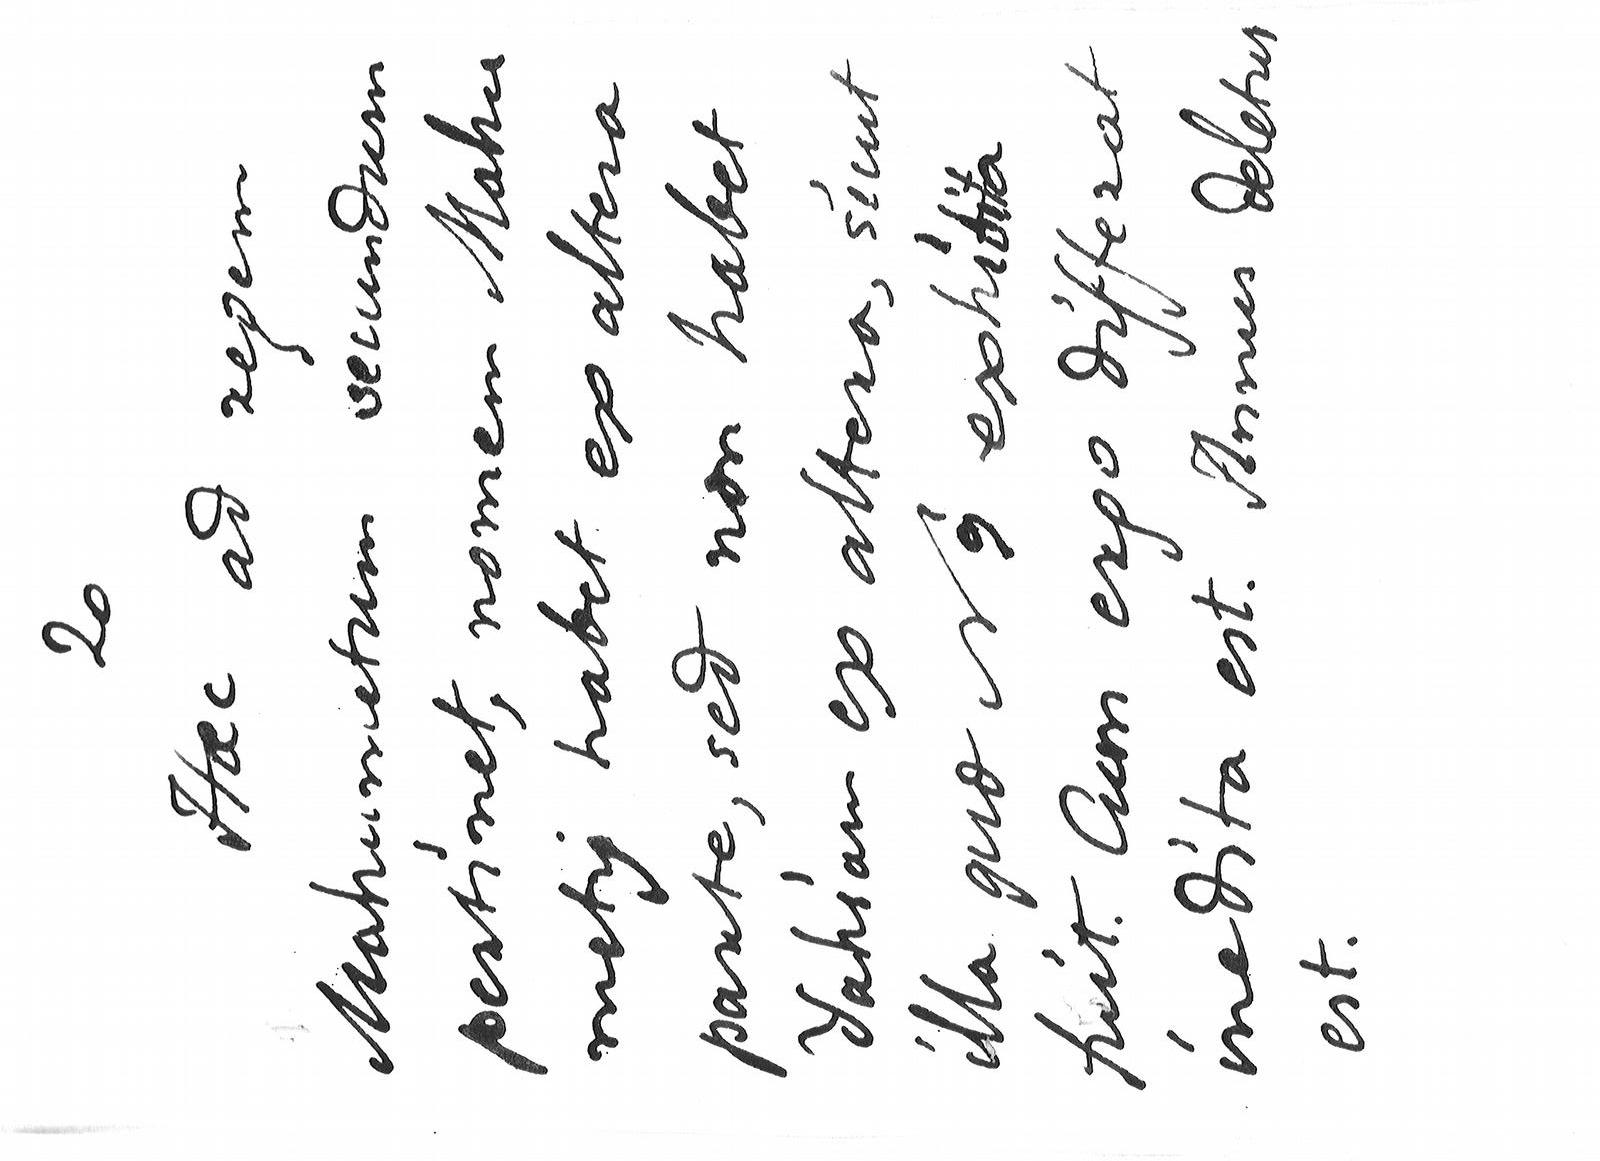 20
Hæc ad regem
Mahummetum secundum
pertinet, nomen Mahu
metij habet ex altera
parte, sed non habet
Yahiam ex altera, sicut
illa quæ N 9 exhibita
fuit. Cum ergo differat
inedita est. Annus deletus
est.